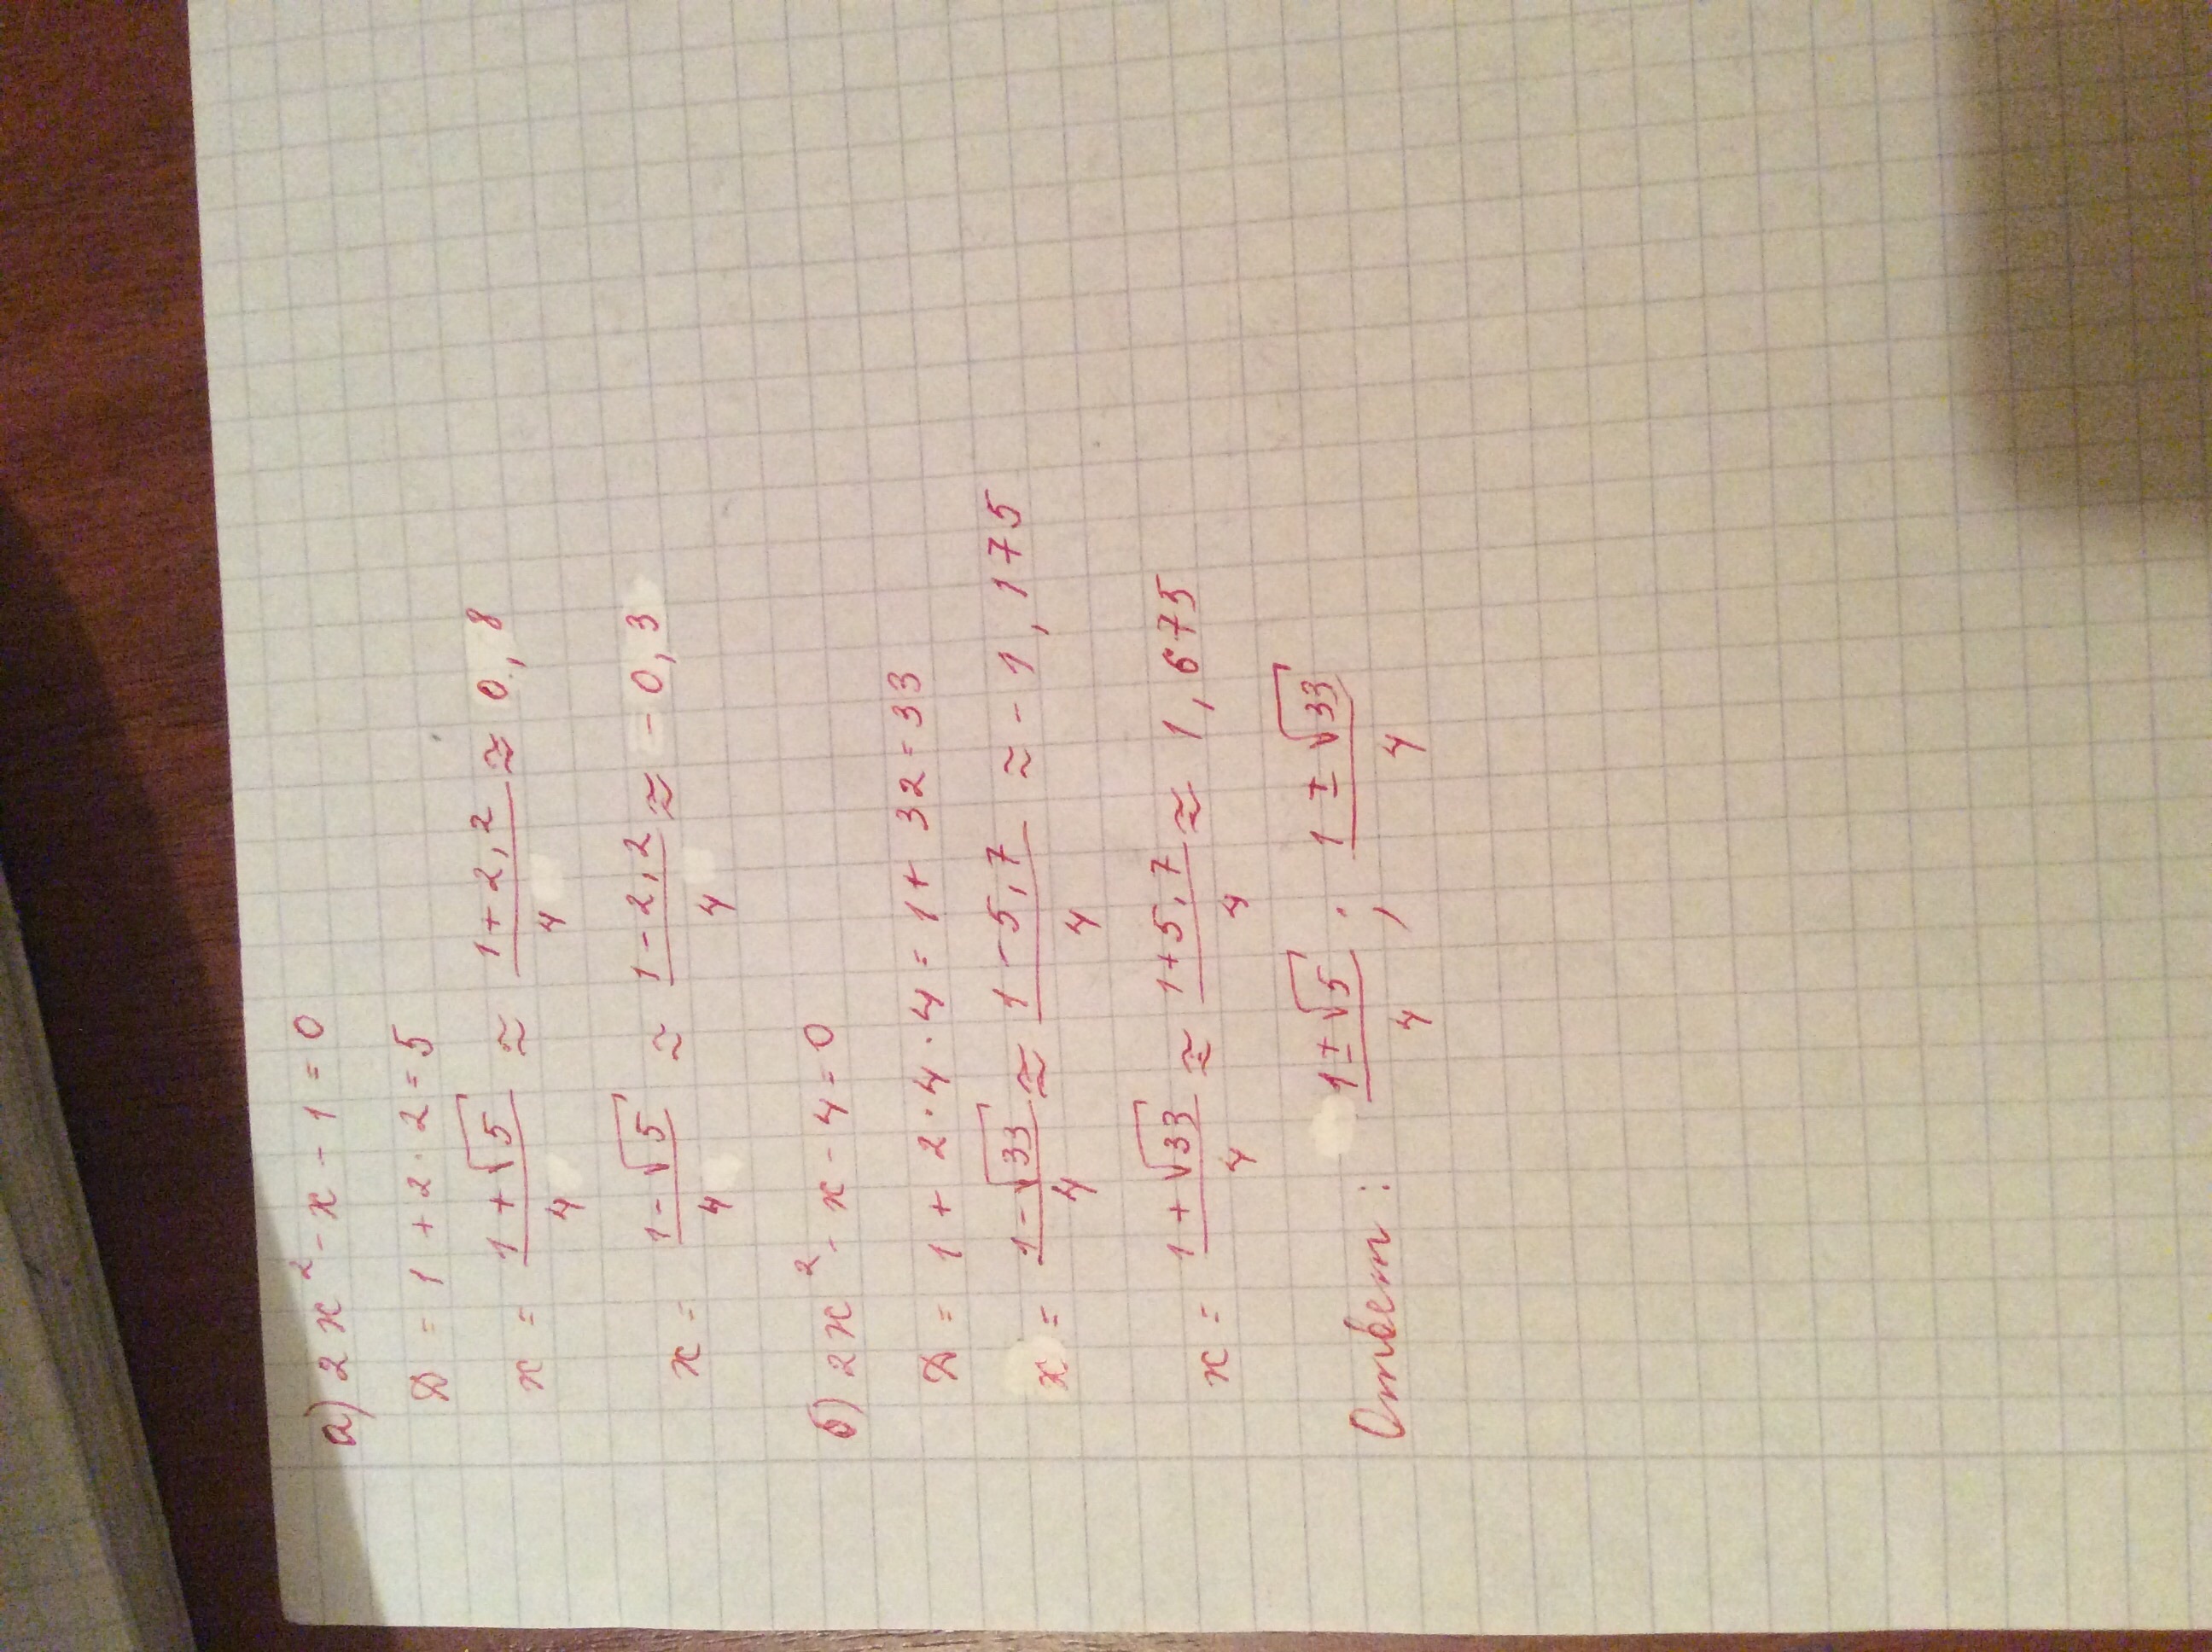 а) 2x² - x - 1 = 0
D = 1 + 2 · 2 = 5
x = (1 + √5)/4 ≈ (1 + 2,2)/4 ≈ 0,8
x = (1 - √5)/4 ≈ (1 - 2,2)/4 ≈ - 0,3
б) 2x² - x - 4 = 0
D = 1 + 2 · 4 · 4 = 1 + 32 = 33
x = (1 - √33)/4 ≈ (1 - 5,7)/4 ≈ - 1,175
x = (1 + √33)/4 ≈ (1 + 5,7)/4 ≈ 1,675
Ответ: (1 ± √5)/4 ; (1 ± √33)/4